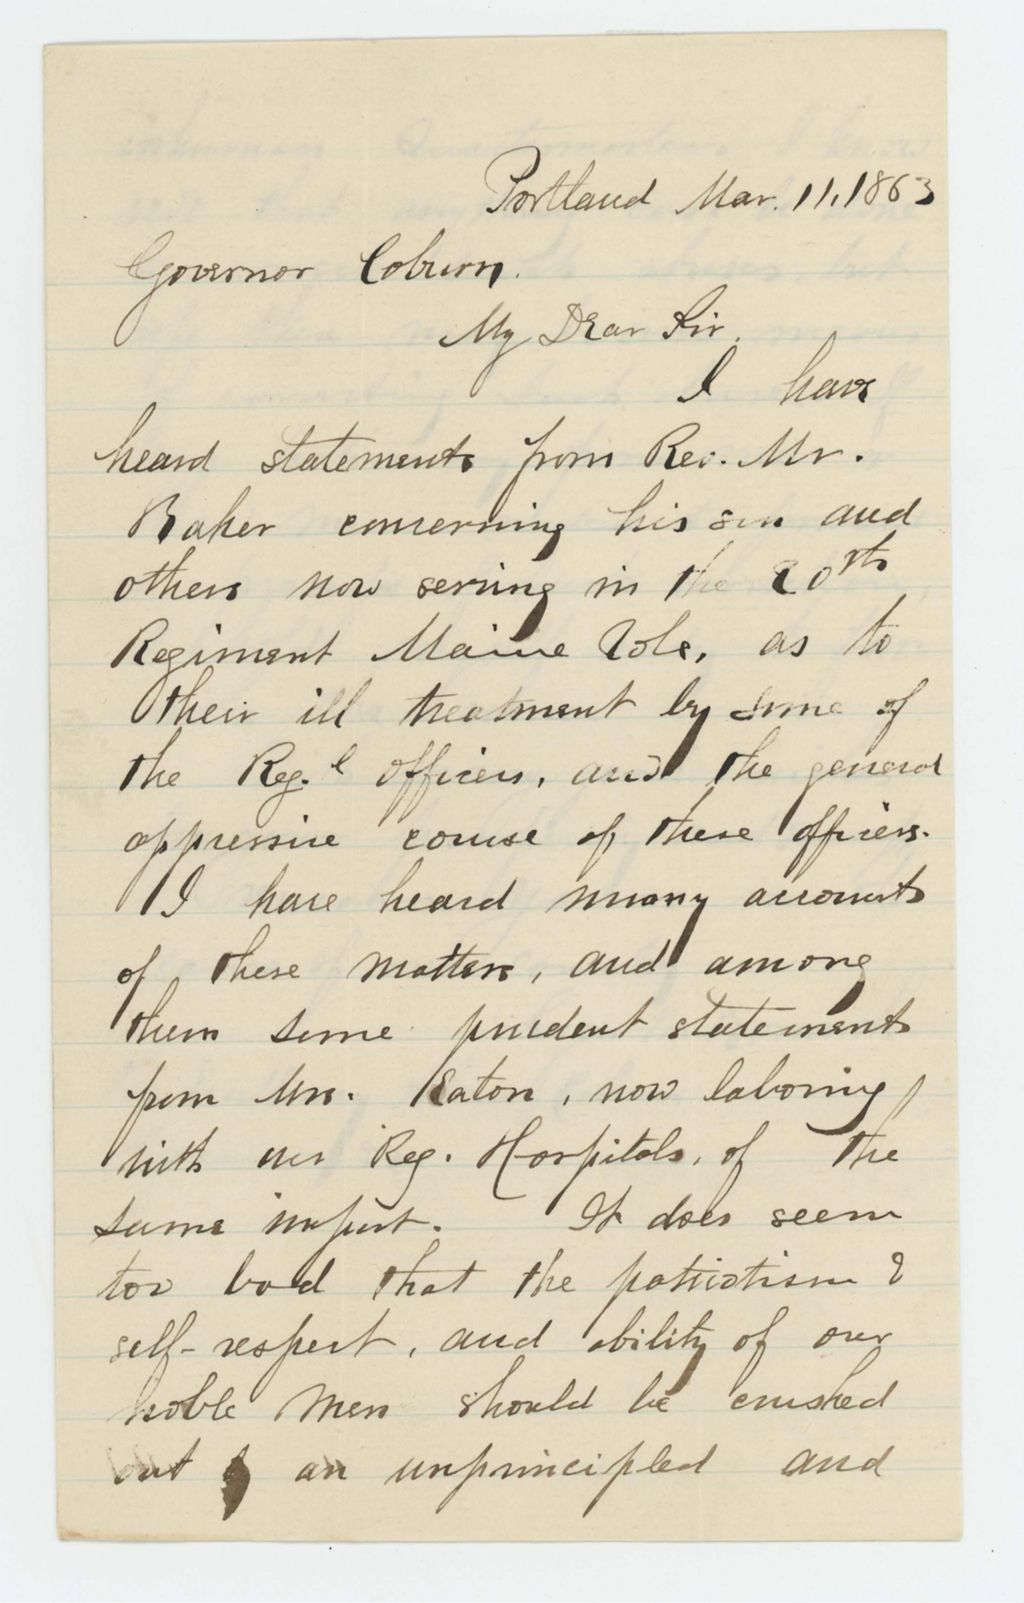 Portland Mar. 11, 1863
Governor Coburn.
My Dear Sir,
I have
heard statements from Rev. Mr.
Baker concerning his son and
others now serving in the 20th
Regiment Maine Vols, as to
their ill treatment by some of
the Reg.l officers, and the general
oppressive course of these officers.
I have heard many accounts
of these matters, and among
them some prudent statements
from Mrs. Eaton, now laboring
with our Reg. Hospitals, of the
same import. It does seem
too bad that the patriotism &
self-respect, and ability of our
noble men should be crushed
out by an unprincipled and